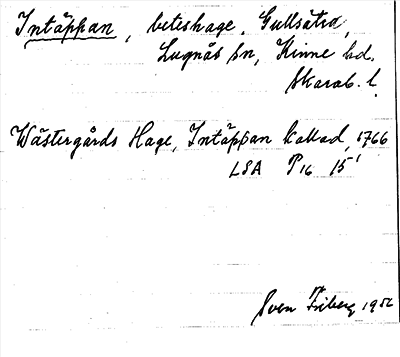 Intäppan, beteshage, Gullsåtra,
Lugnås sn, Kinne hd.
Skarab. l.
Wästergårds Hage, Intäppan kallad, 1766
LSA P16 15¹
Sven Friberg 19